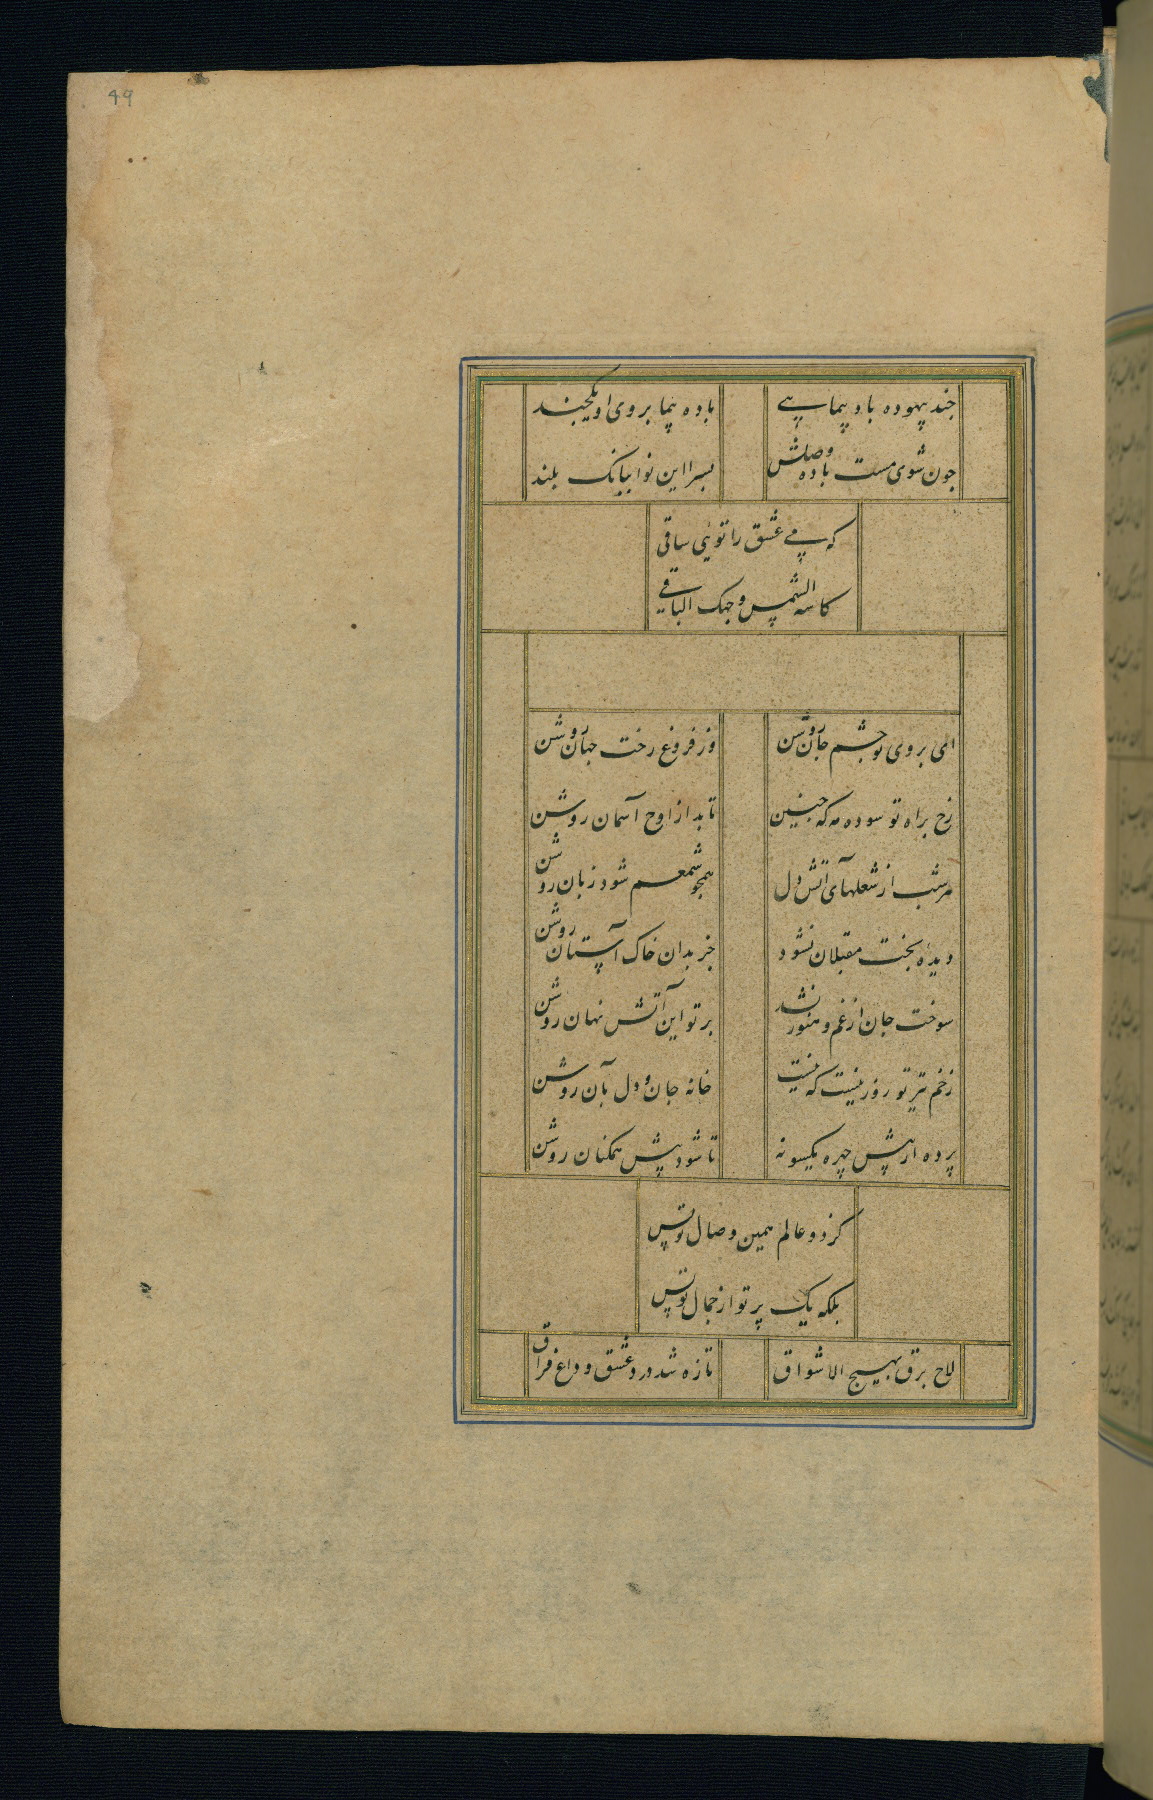 49
چند بیهوده باد پیمایی
باده پیما بروی او یکچند
چون شوی مست باده وصلش
بسرا این نوا ببانک بلند
که می عشق را تویی ساقی
کاسه الشمس وجهک الباقی
ای بروی تو چشم جان روشن
وز فروغ رخت جهان روشن
رخ براه تو سوده مه که چنین
تابد از اوج آسمان روشن
هر شب از شعلهای آتش دل
همچو شمعم شود زبان روشن
دیده بخت مقبلان نشود
جز بدان خاک آستان روشن
سوخت جان از غم و هنوز نشد
بر تو این آتش نهان روشن
زخم تیر تو روزنیست که نیست
خانه جان و دل بآن روشن
پرده از پیش چهره یکسو نه
تا شود پیش همکنان روشن
کز دو عالم همین وصال تو بس
بلکه یک پرتو از جمال تو بس
لاح برق یهیج الاشواق
تازه شد درد عشق و داغ فراق